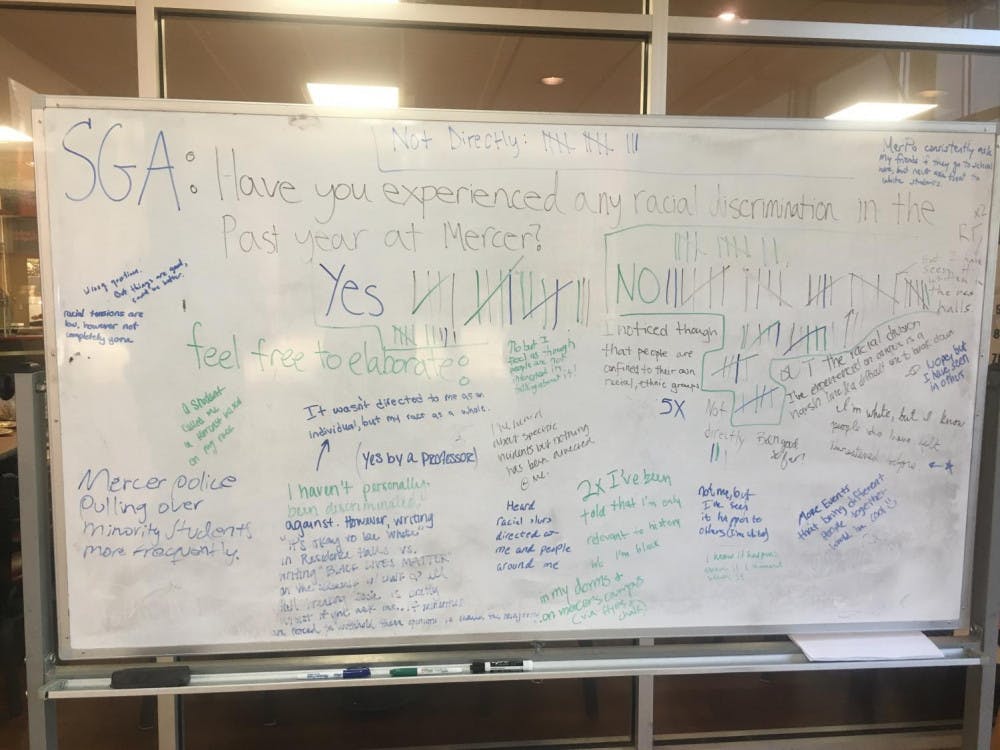 Not Directly:
MerPo consistently ask
my friends if they go to school
here, but never ask them to
white students
SGA: Have you experienced any racial discrimination in the
Past year at Mercer?
Wrong question.
But things are good,
could be better.
racial tensions are
low, however not
completely gone
Yes
NO
x2
But I have
seen it
written
the res
halls.
feel free to elaborate:
No but I
feel as though
people are not
talking about it!
I noticed though
that people are
confined to their own
racial, ethnic groups
5X
BUT the racial division
I've experienced on campus is a
harsh line &
difficult
break down
Nope, but
I have seen
in others
a student
called me
a
based
on my race
It wasn't directed to me as an
individual, but my race as a whole.
(Yes by a PROFESSOR)
I've heard
about specific
incidents but nothing
has been directed
@ me.
Not
directly
I'm white, but I know
people who have felt
Mercer police
Pulling over
minority students
more frequently.
I haven't personally
been discriminated
against. However, writing
"it's okay to be white"
in Residence Halls vs.
writing "BLACK LIVES MATTER"
on the
Heard
racial slurs
directed at
me and people
around me
2x I've been
told that I'm only
relevant to history
bc I'm black
in my dorms +
on mercer's campus
(via flyers &
chalk)
not me, but
I've seen
it happen to
others (I'm white)
I know it happens
even if I haven't
seen it
More Events
that bring different
people together
would be cool!!